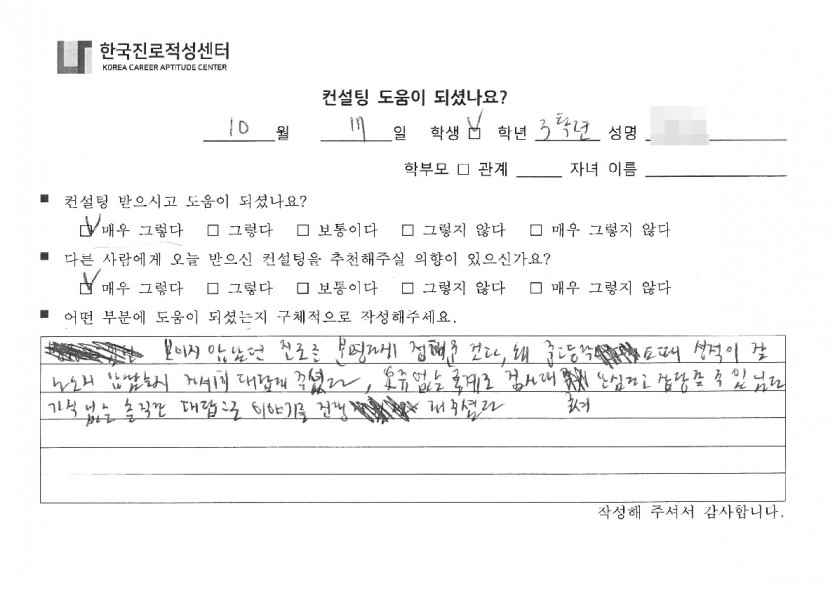 한국진로적성센터
KOREA CAREER APTITUDE CENTER
컨설팅 도움이 되셨나요?
10 월 17 일 학생 ☑ 학년 3학년 성명
학부모 □ 관계 자녀 이름
■ 컨설팅 받으시고 도움이 되셨나요?
☑ 매우 그렇다 □ 그렇다 □ 보통이다 □ 그렇지 않다 □ 매우 그렇지 않다
■ 다른 사람에게 오늘 받으신 컨설팅을 추천해주실 의향이 있으신가요?
☑ 매우 그렇다 □ 그렇다 □ 보통이다 □ 그렇지 않다 □ 매우 그렇지 않다
■ 어떤 부분에 도움이 되셨는지 구체적으로 작성해주세요.
보이지 않았던 진로를 분명하게 왜 때 성적이 잘
자세히 대답해 주셨다, 없는 검사해
가식 없는 솔직한 대답으로 이야기를 진행 해주셨다
작성해 주셔서 감사합니다.